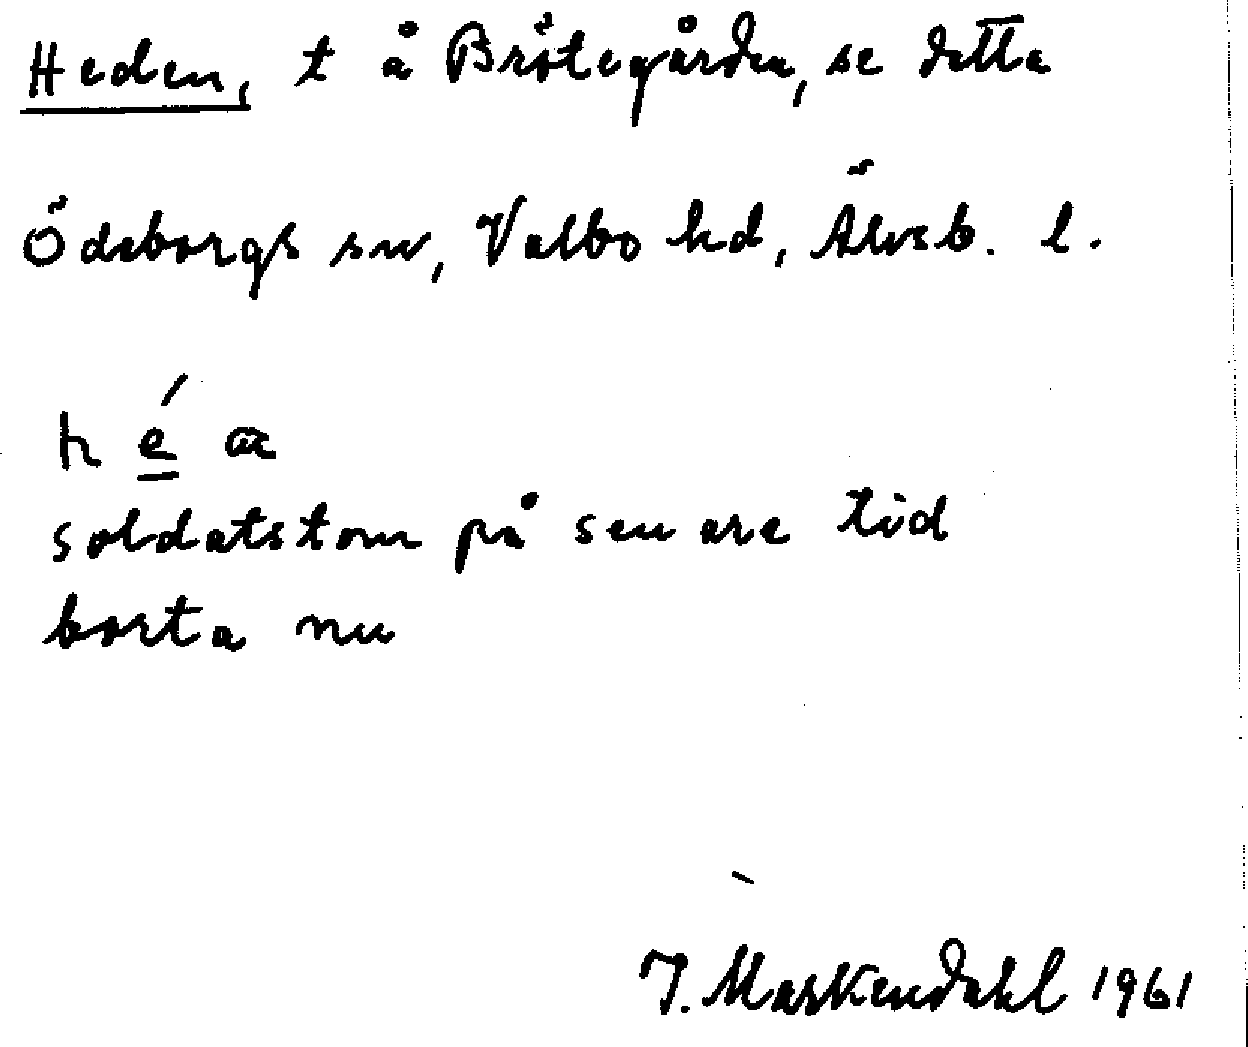 Heden, t å Brötegården, se detta
Ödeborgs sn, Valbo hd, Älvsb. l.
h é æ
soldatstom på senare tid
borta nu
J. Maskendahl 1961